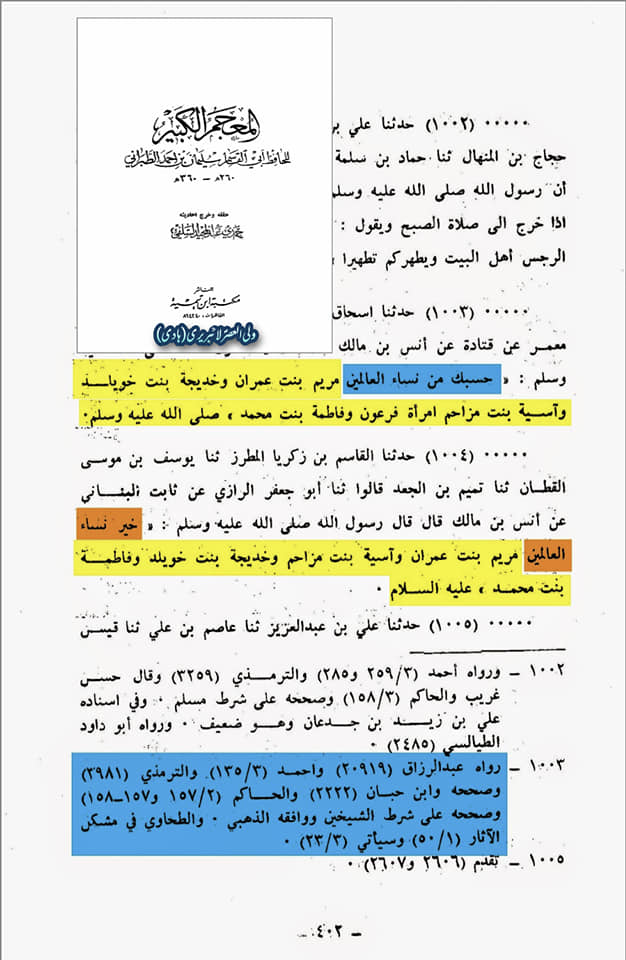 المعجم الكبير
للحافظ أبي القاسم سليمان بن أحمد الطبراني
٢٦٠هـ - ٣٦٠هـ
حققه وخرج أحاديثه
حمدي عبد المجيد السلفي
الناشر
مكتبة ابن تيمية
القاهرة
ولي العصر لائبريري (هادي)
٠٠٠٠٠ (١٠٠٢) حدثنا علي بن
حجاج بن المنهال ثنا حماد بن سلمة
أن رسول الله صلى الله عليه وسلم
اذا خرج الى صلاة الصبح ويقول :
الرجس أهل البيت ويطهركم تطهيرا ،
٠٠٠٠٠ (١٠٠٣) حدثنا اسحاق
معمر عن قتادة عن أنس بن مالك
وسلم : « حسبك من نساء العالمين مريم بنت عمران وخديجة بنت خويلد
وآسية بنت مزاحم امرأة فرعون وفاطمة بنت محمد ، صلى الله عليه وسلم٠
٠٠٠٠٠ (١٠٠٤) حدثنا القاسم بن زكريا المطرز ثنا يوسف بن موسى
القطان ثنا تميم بن الجعد قالوا ثنا أبو جعفر الرازي عن ثابت البناني
عن أنس بن مالك قال قال رسول الله صلى الله عليه وسلم : « خير نساء
العالمين مريم بنت عمران وآسية بنت مزاحم وخديجة بنت خويلد وفاطمة
بنت محمد ، عليه السلام ٠
٠٠٠٠٠ (١٠٠٥) حدثنا علي بن عبدالعزيز ثنا عاصم بن علي ثنا قيس
١٠٠٢ – ورواه أحمد (٢٥٩/٣ و٢٨٥) والترمذي (٣٢٥٩) وقال حسن
غريب والحاكم (١٥٨/٣) وصححه على شرط مسلم ٠ وفي اسناده
علي بن زيد بن جدعان وهو ضعيف ٠ ورواه أبو داود
الطيالسي (٢٤٨٥) ٠
١٠٠٣ – رواه عبدالرزاق (٢٠٩١٩) واحمد (١٣٥/٣) والترمذي (٣٩٨١)
وصححه وابن حبان (٢٢٢٢) والحاكم (١٥٧/٢ و١٥٧–١٥٨)
وصححه على شرط الشيخين ووافقه الذهبي ٠ والطحاوي في مشكل
الآثار (٥٠/١) وسيأتي (٢٣/٣) ٠
١٠٠٥ – تقدم (٢٦٠٦ و٢٦٠٧) ٠
– ٤٠٢ –